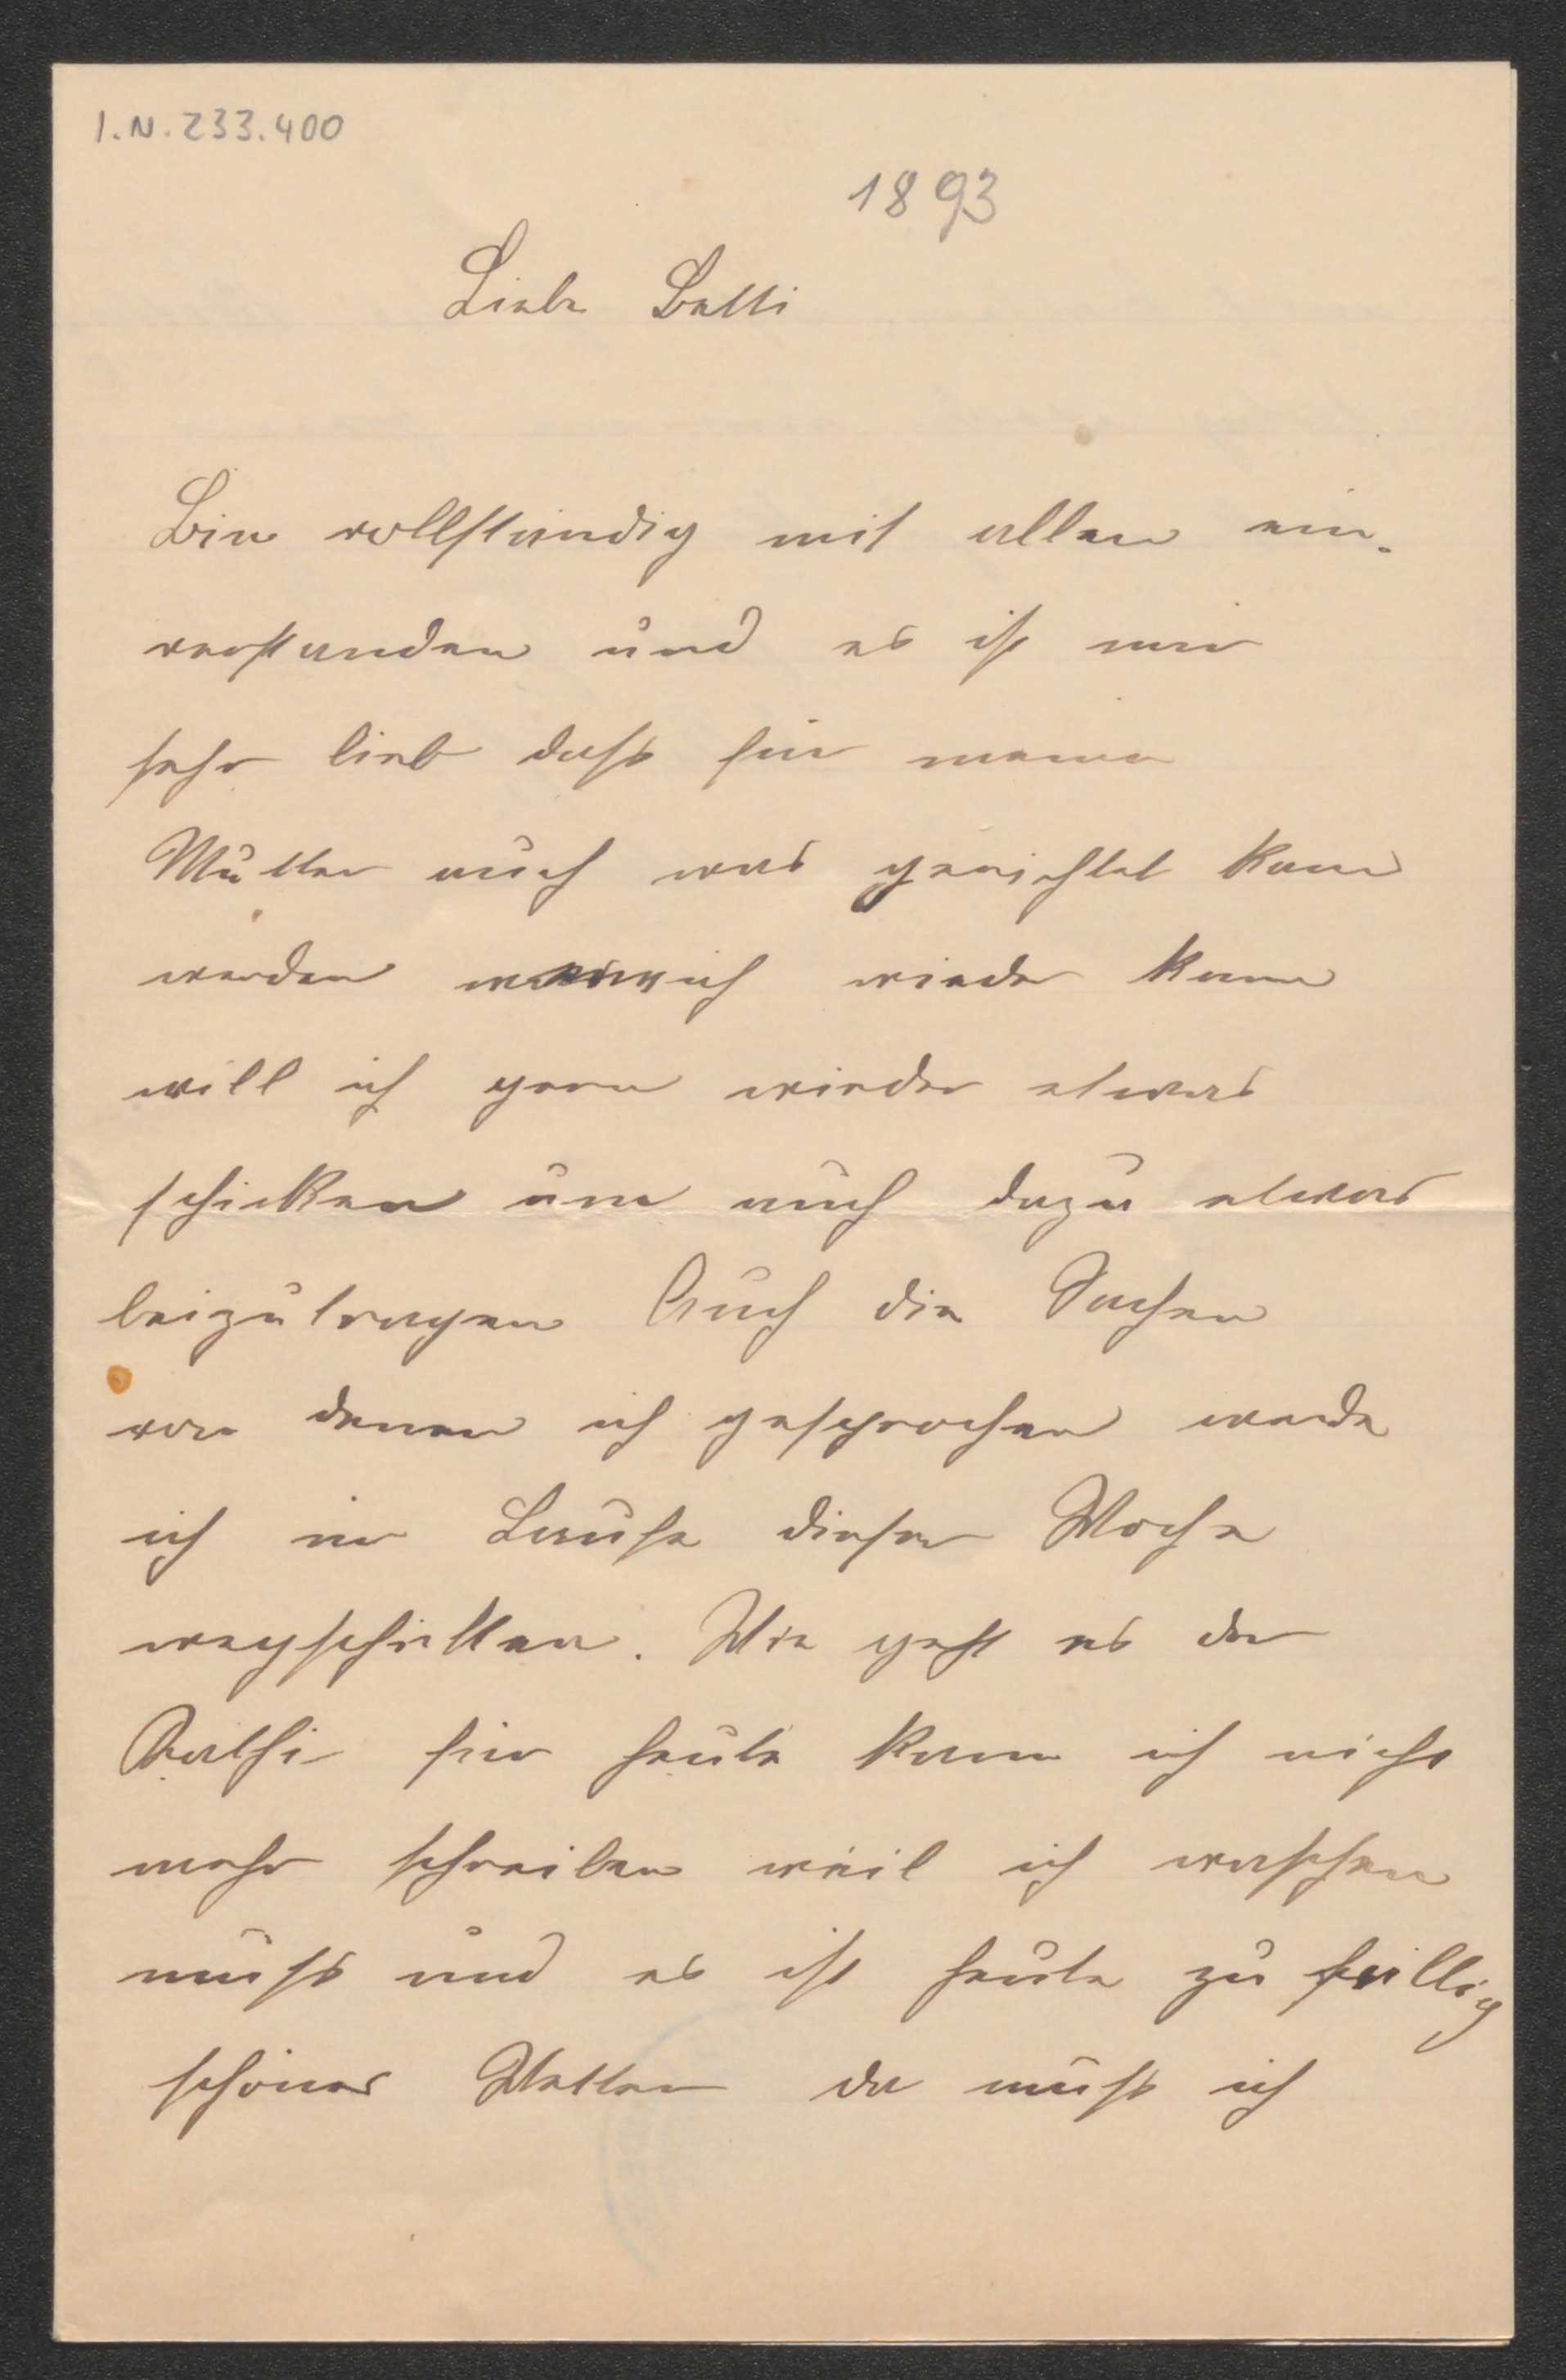 I.N. 233.400
1893
Liebe Betti
Bin vollständig mit allen ein-
verstanden und es ist mir
sehr lieb dass für meine
Mutter auch was gerichtet kann
werden wenn ich wieder kann
will ich gern wieder etwas
schicken um auch dazu etwas
beizutragen Auch die Sachen
von denen ich gesprochen werde
ich im Laufe dieser Woche
wegschicken. Wie geht es der
Kathi für heute kann ich nicht
mehr schreiben weil ich waschen
muss und es ist heute zu fällig
schönes Wetter da muss ich